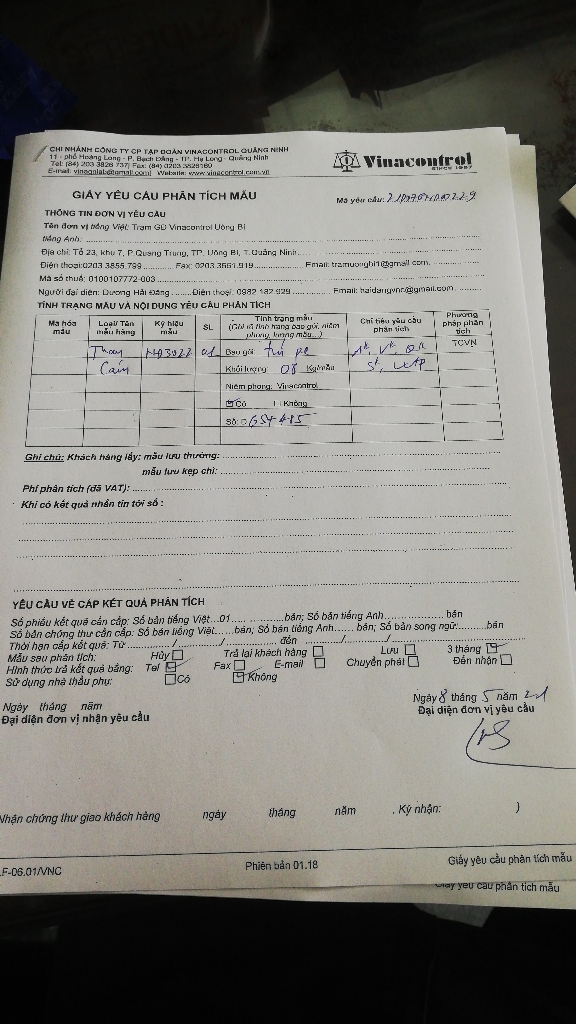 CHI NHÁNH CÔNG TY CP TẬP ĐOÀN VINACONTROL QUẢNG NINH
11 - phố Hoàng Long - P. Bạch Đằng - TP. Hạ Long - Quảng Ninh
Tel: (84) 203 3826 737| Fax: (84) 0203 3826169
E-mail: vinaqnlab@gmail.com| Website: www.vinacontrol.com.vn
Vinacontrol
SINCE 1957
GIẤY YÊU CẦU PHÂN TÍCH MẪU
Mã yêu cầu:
THÔNG TIN ĐƠN VỊ YÊU CẦU
Tên đơn vị tiếng Việt: Trạm GD Vinacontrol Uông Bí
tiếng Anh:
Địa chỉ: Tổ 23, khu 7, P.Quang Trung, TP. Uông Bí, T.Quảng Ninh
Điện thoại:0203.3855.799 Fax: 0203.3661.919 Email: tramuongbi1@gmail.com
Mã số thuế: 0100107772-003
Người đại diện: Dương Hải Đăng Điện thoại: 0982.132.929 Email: haidangvnc@gmail.com
TÌNH TRẠNG MẪU VÀ NỘI DUNG YÊU CẦU PHÂN TÍCH
Mã hóa mẫu Loại/ Tên mẫu hàng Ký hiệu mẫu SL Tình trạng mẫu (Ghi rõ tình trạng bao gói, niêm phong, lượng mẫu...) Chỉ tiêu yêu cầu phân tích Phương pháp phân tích
Than 01 Bao gói: túi pe TCVN
Cám Khối lượng: 08 Kg/mẫu
Niêm phong: Vinacontrol
Có Không
Số: 0654415
Ghi chú: Khách hàng lấy: mẫu lưu thường:
mẫu lưu kẹp chì:
Phí phân tích (đã VAT):
Khi có kết quả nhắn tin tới số :
YÊU CẦU VỀ CẤP KẾT QUẢ PHÂN TÍCH
Số phiếu kết quả cần cấp: Số bản tiếng Việt...01 bản; Số bản tiếng Anh bản
Số bản chứng thư cần cấp: Số bản tiếng Việt bản; Số bản tiếng Anh bản; Số bản song ngữ: bản
Thời hạn cấp kết quả: Từ / / đến / /
Mẫu sau phân tích: Hủy Trả lại khách hàng Lưu 3 tháng
Hình thức trả kết quả bằng: Tel Fax E-mail Chuyển phát Đến nhận
Sử dụng nhà thầu phụ: Có Không
Ngày 8 tháng 5 năm 21
Ngày tháng năm Đại diện đơn vị yêu cầu
Đại diện đơn vị nhận yêu cầu
Nhận chứng thư giao khách hàng ngày tháng năm . Ký nhận: )
F-06.01/VNC Phiên bản 01.18 Giấy yêu cầu phân tích mẫu
Giấy yêu cầu phân tích mẫu